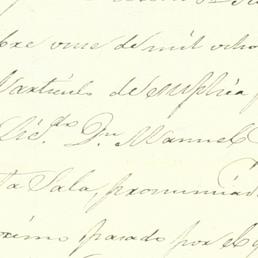 bre once de mil ocho
Martículo de suplica
Lic.do Dn Manuel
ta Sala, pronunciad
óximo pasado por el